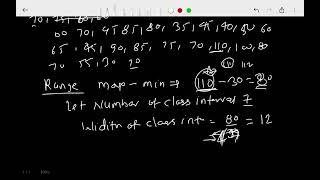 60 70, 45 85, 80, 35, 45, 90, 50 60
65, 45, 90, 85, 75, 70, 110, 100, 80
70 55, 30 20
111 112
Range max - min ⇒ 110 - 30 = 80
Let Number of class interval 7
Width of class int = 80 = 12